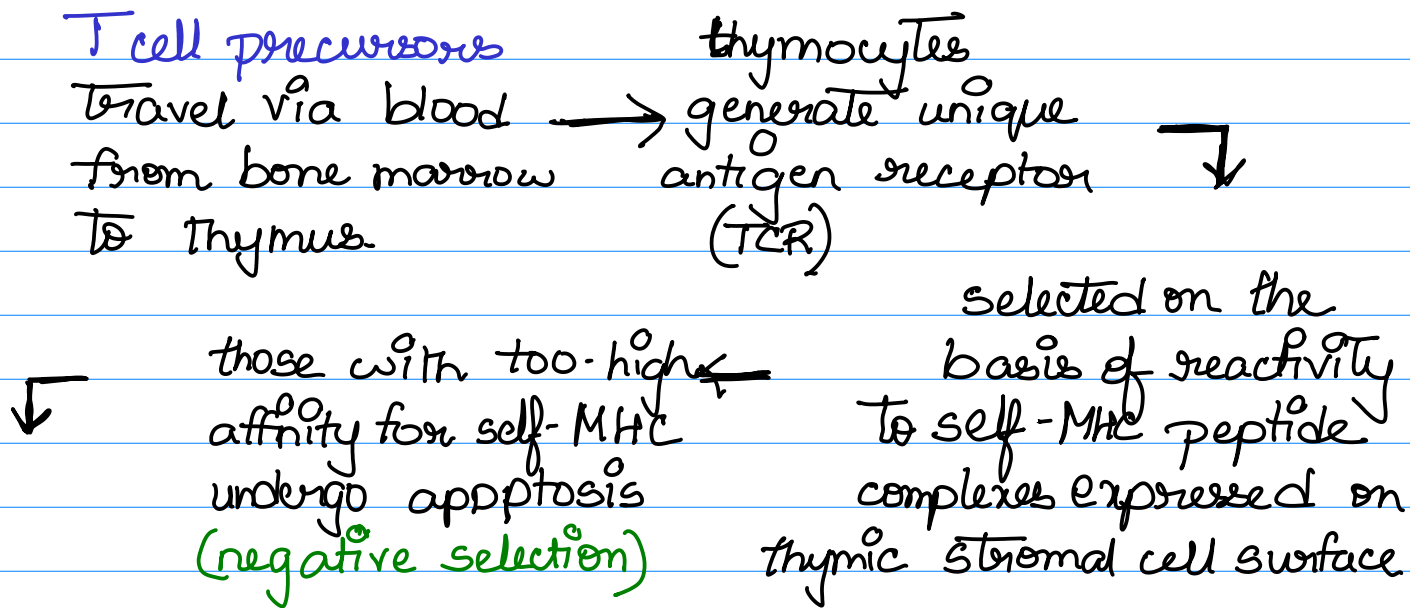 T cell precursors
travel via blood
from bone marrow
to thymus.
thymocytes
generate unique
antigen receptor
(TCR)
selected on the
basis of reactivity
to self-MHC peptide
complexes expressed on
thymic stromal cell surface
those with too-high
affinity for self-MHC
undergo appptosis
(negative selection)